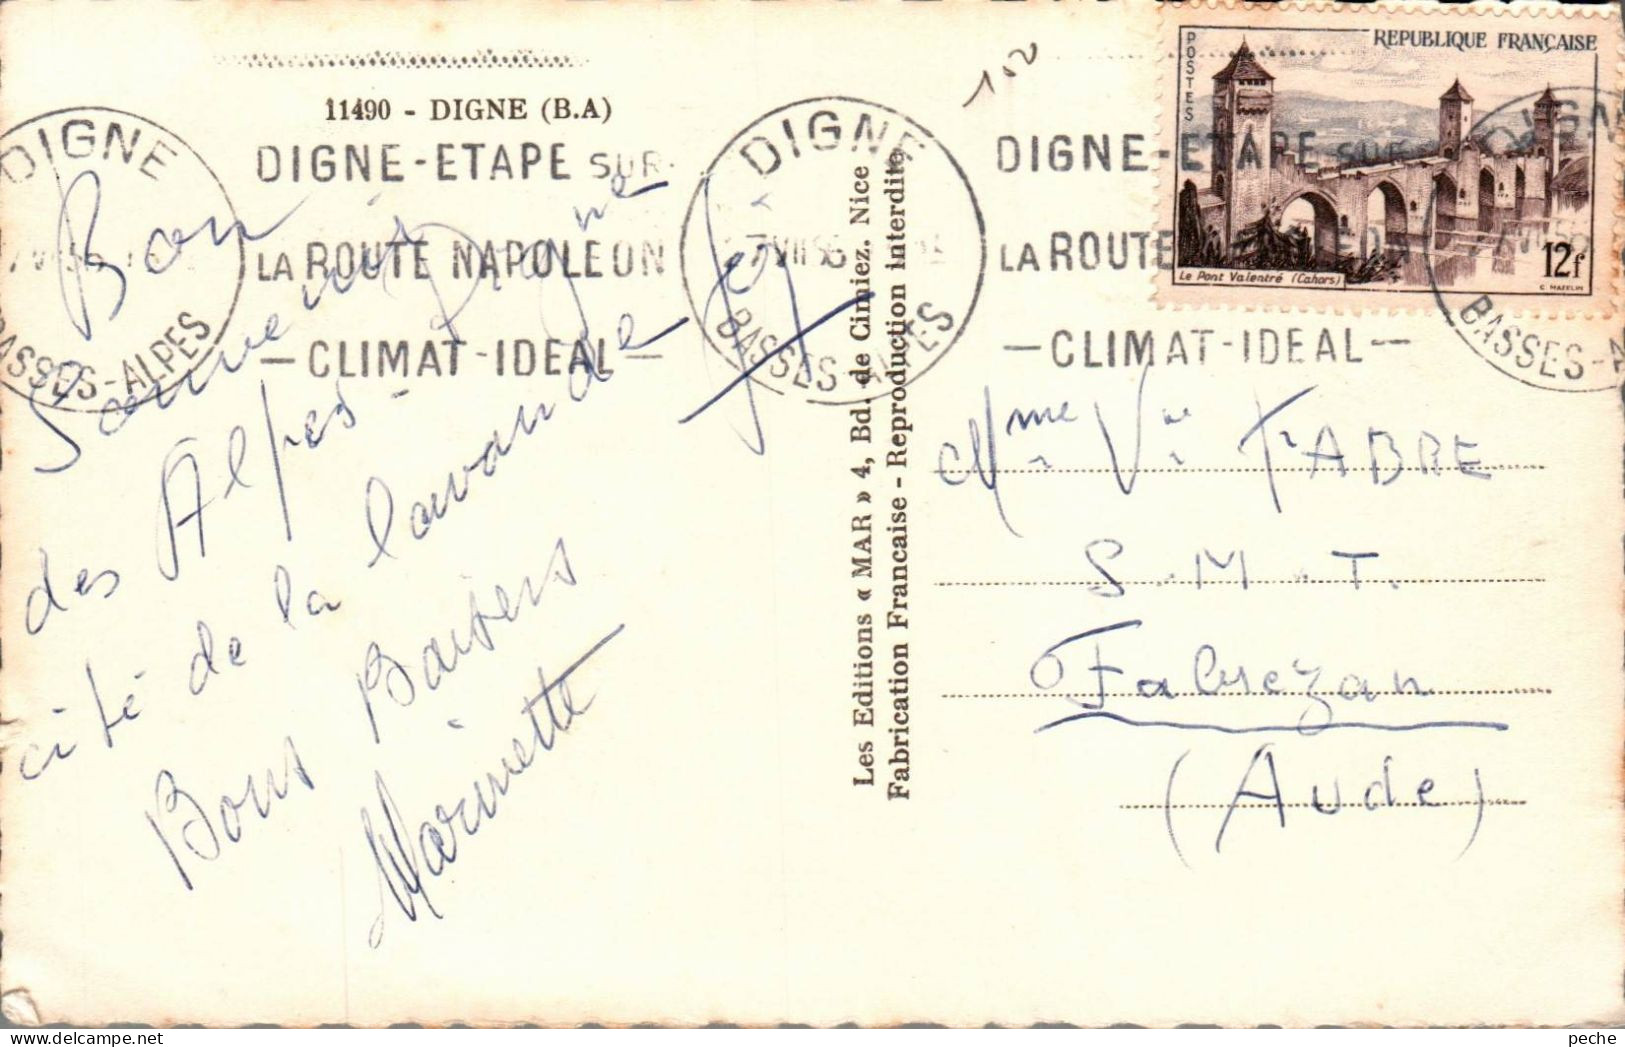 11490 - DIGNE (B.A)
DIGNE
BASSES-ALPES
DIGNE-ETAPE SUR
LA ROUTE NAPOLEON
—CLIMAT-IDEAL—
DIGNE
7 VII 56
BASSES-ALPES
DIGNE-ETAPE SUR
LA ROUTE
—CLIMAT-IDEAL—
DIGNE
BASSES-A
POSTES
REPUBLIQUE FRANÇAISE
Le Pont Valentré (Cahors)
12f
C. MAZELIN
100
Bon
Souvenir Digne
des Alpes-
cité de la lavande
Bons Baisers
Marinette
Les Editions « MAR » 4, Bd. de Cimiez. Nice
Fabrication Francaise - Reproduction interdite
Mme Vve FABRE
S.M.T.
Fabrezan
(Aude)
peche